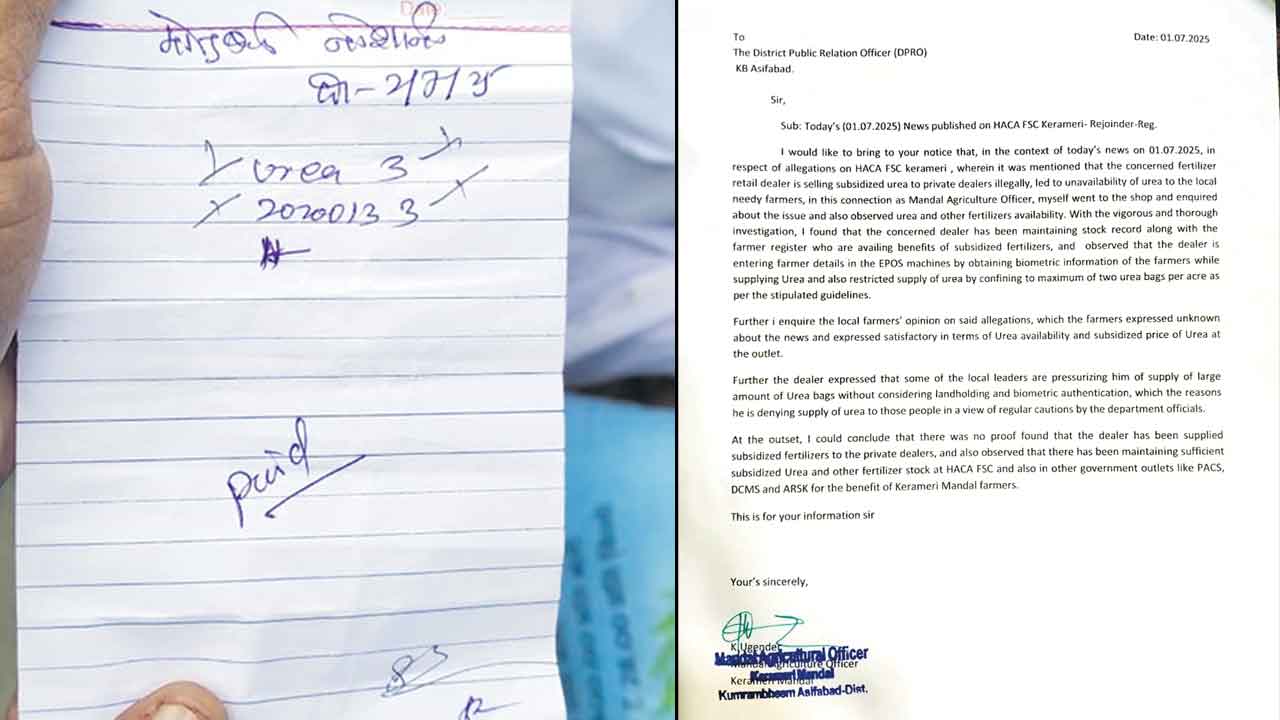 Date:
Urea 3
2020013 3
paid
To
Date: 01.07.2025
The District Public Relation Officer (DPRO)
KB Asifabad.
Sir,
Sub: Today's (01.07.2025) News published on HACA FSC Kerameri- Rejoinder-Reg.
I would like to bring to your notice that, in the context of today's news on 01.07.2025, in
respect of allegations on HACA FSC kerameri , wherein it was mentioned that the concerned fertilizer
retail dealer is selling subsidized urea to private dealers illegally, led to unavailability of urea to the local
needy farmers, in this connection as Mandal Agriculture Officer, myself went to the shop and enquired
about the issue and also observed urea and other fertilizers availability. With the vigorous and thorough
investigation, I found that the concerned dealer has been maintaining stock record along with the
farmer register who are availing benefits of subsidized fertilizers, and observed that the dealer is
entering farmer details in the EPOS machines by obtaining biometric information of the farmers while
supplying Urea and also restricted supply of urea by confining to maximum of two urea bags per acre as
per the stipulated guidelines.
Further i enquire the local farmers' opinion on said allegations, which the farmers expressed unknown
about the news and expressed satisfactory in terms of Urea availability and subsidized price of Urea at
the outlet.
Further the dealer expressed that some of the local leaders are pressurizing him of supply of large
amount of Urea bags without considering landholding and biometric authentication, which the reasons
he is denying supply of urea to those people in a view of regular cautions by the department officials.
At the outset, I could conclude that there was no proof found that the dealer has been supplied
subsidized fertilizers to the private dealers, and also observed that there has been maintaining sufficient
subsidized Urea and other fertilizer stock at HACA FSC and also in other government outlets like PACS,
DCMS and ARSK for the benefit of Kerameri Mandal farmers.
This is for your information sir
Your's sincerely,
K Ugender
Mandal Agricultural Officer
Mandal Agriculture Officer
Kerameri Mandal
Kerameri Mandal
Kumrambheem Asifabad-Dist.